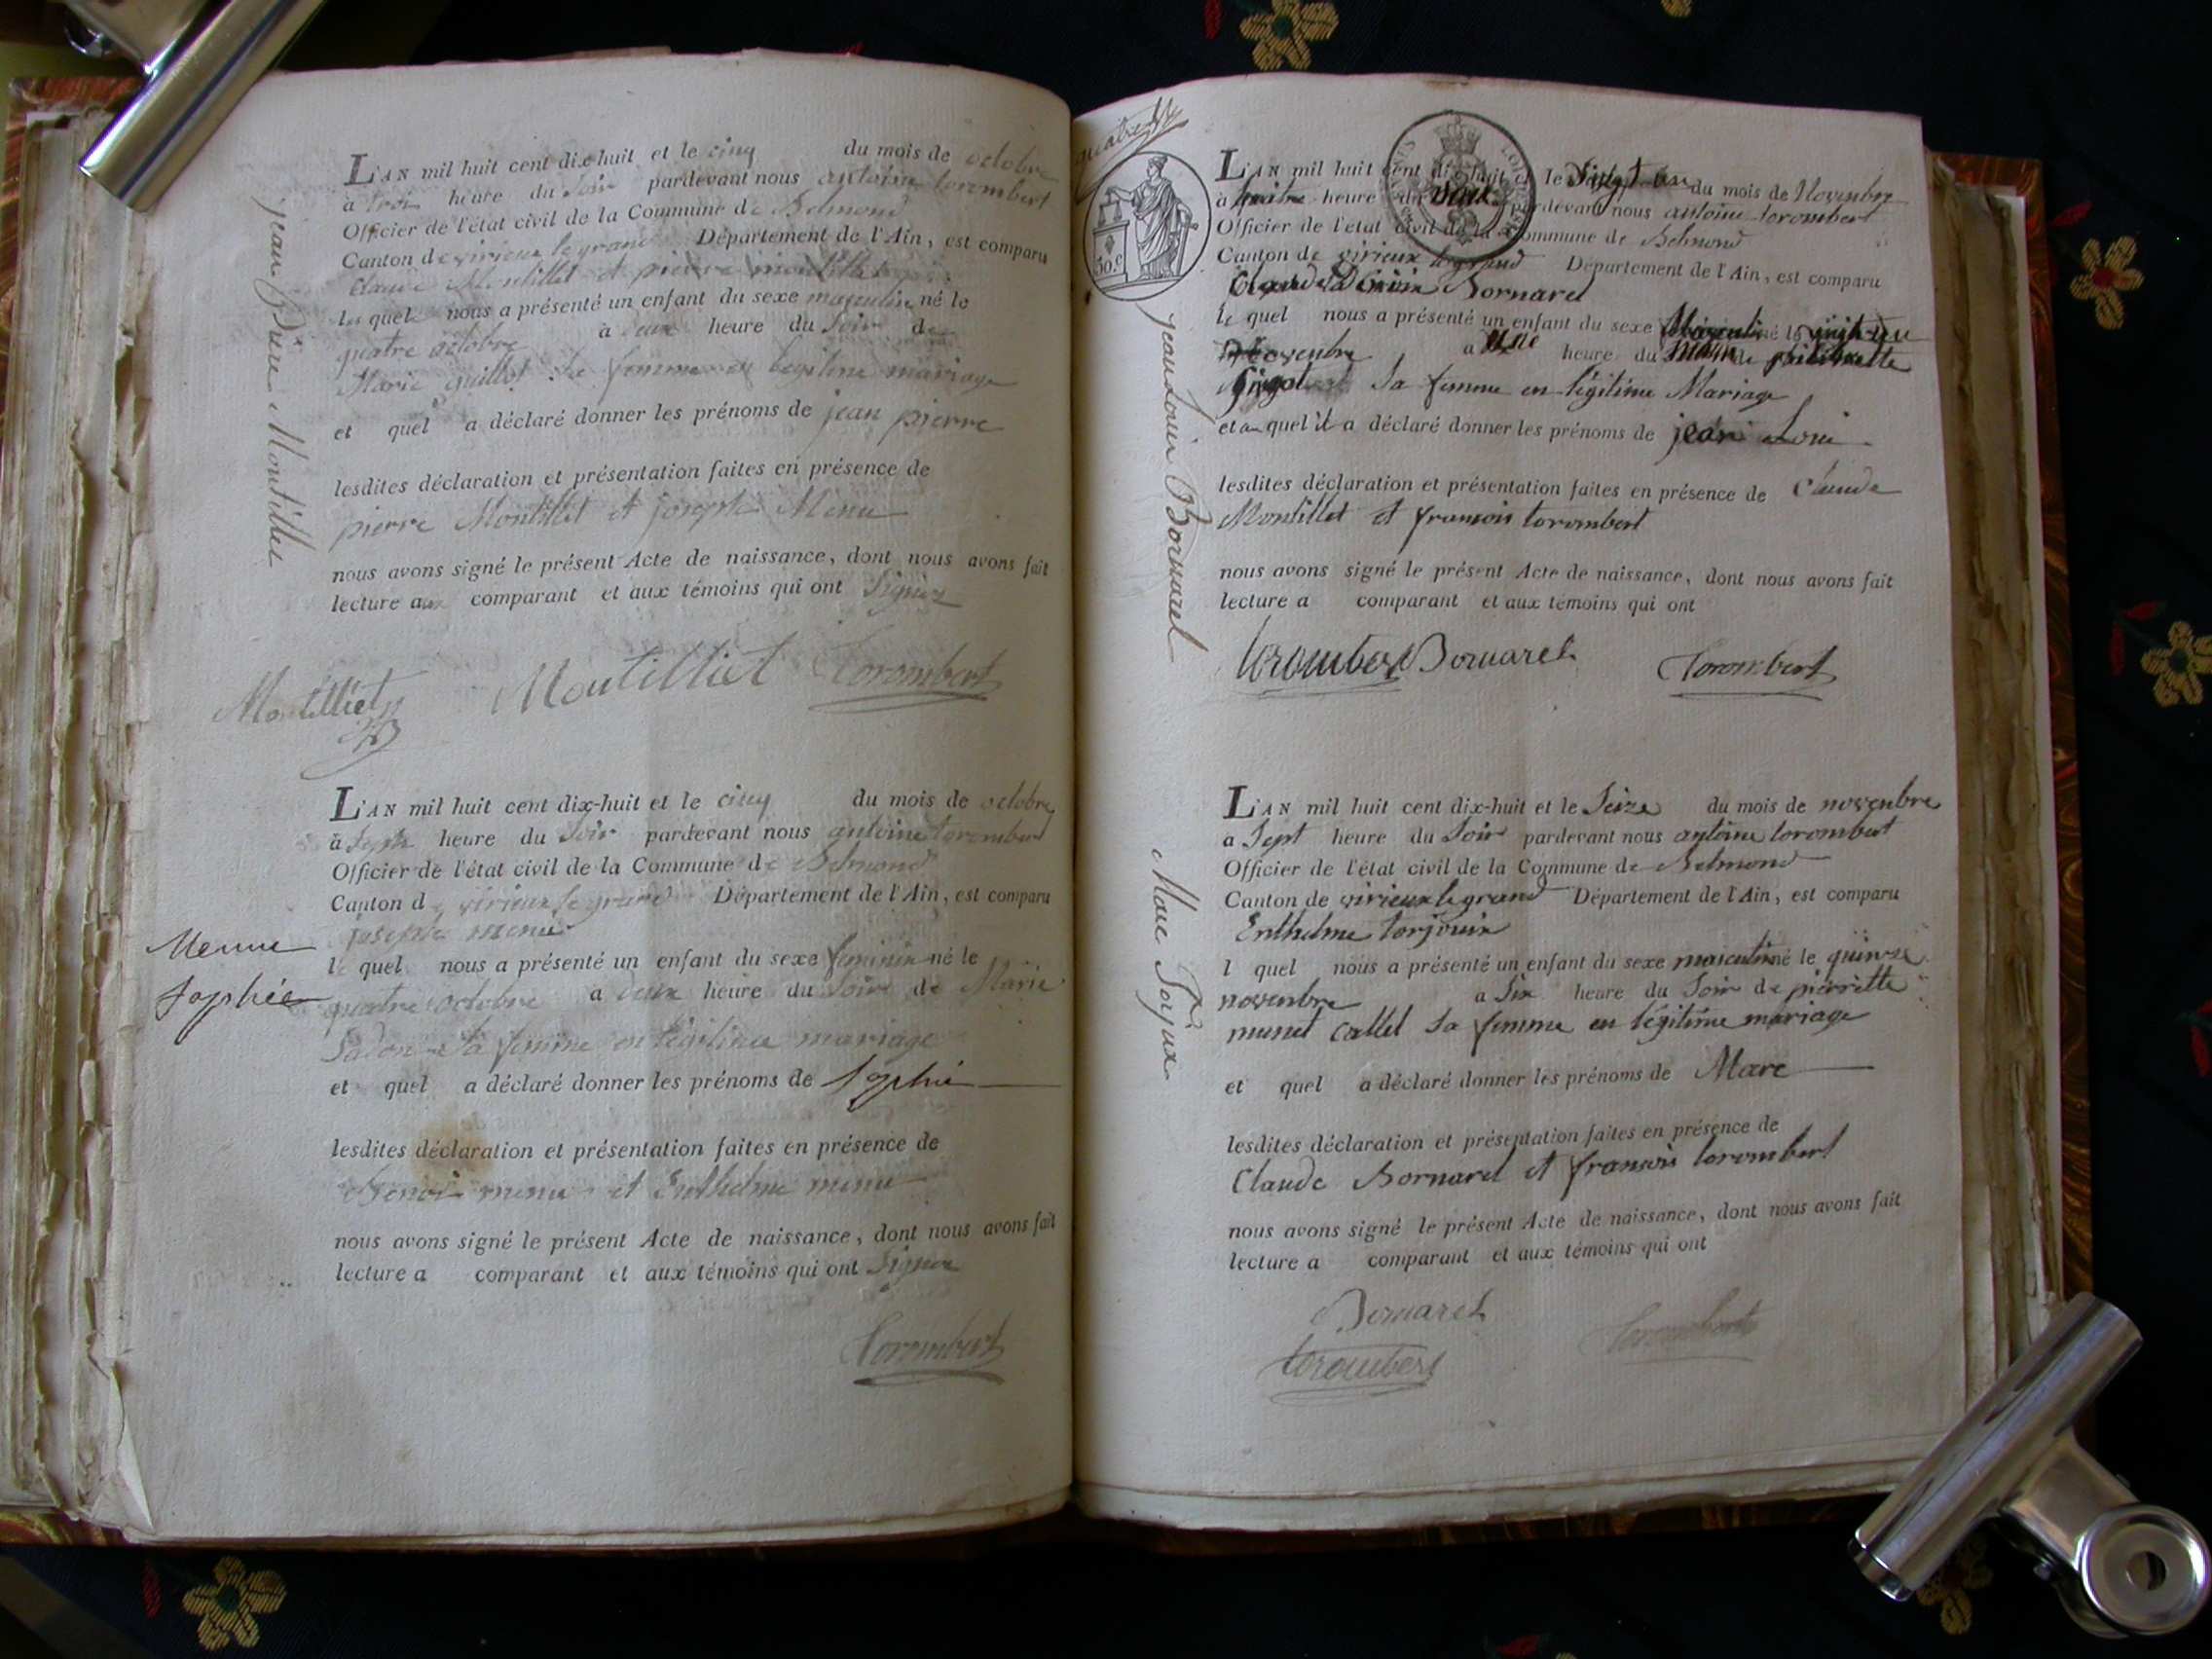 jean Pierre Montillet
L'AN mil huit cent dix-huit et le cinq du mois de octobre
à trois heure du Soir pardevant nous antoine torombert
Officier de l'état civil de la Commune de Belmond
Canton de virieux le grand Département de l'Ain, est comparu
Claude Montillet et pierre montillet
les quel nous a présenté un enfant du sexe masculin né le
quatre octobre à deux heure du Soir de
Marie guillot Sa femme en legitime mariage
et quel a déclaré donner les prénoms de jean pierre
lesdites déclaration et présentation faites en présence de
pierre Montillet et joseph Menu
nous avons signé le présent Acte de naissance, dont nous avons fait
lecture aux comparant et aux témoins qui ont Signer
Montilliet Montilliet Torombert
Menu
Sophie
L'AN mil huit cent dix-huit et le cinq du mois de octobre
à Sept heure du Soir pardevant nous antoine torombert
Officier de l'état civil de la Commune de Belmond
Canton de virieux le grand Département de l'Ain, est comparu
joseph menu
le quel nous a présenté un enfant du sexe feminin né le
quatre octobre a deux heure du Soir de Marie
Sa femme en légitime mariage
et quel a déclaré donner les prénoms de Sophie
lesdites déclaration et présentation faites en présence de
Benoi menu et Enthelme menu
nous avons signé le présent Acte de naissance, dont nous avons fait
lecture a comparant et aux témoins qui ont Signer
Torombert
50.c
jean Loui Bornarel
L'AN mil huit cent dix-huit et le vingt un du mois de Novembre
à quatre heure du soir pardevant nous antoine torombert
Officier de l'état civil de la Commune de Belmond
Canton de virieux le grand Département de l'Ain, est comparu
Bornarel
le quel nous a présenté un enfant du sexe Masculin né le vingt-un
Novembre a une heure du matin de
Sa femme en légitime Mariage
et au quel il a déclaré donner les prénoms de jean Loui
lesdites déclaration et présentation faites en présence de Claude
Montillet et francois torombert
nous avons signé le présent Acte de naissance, dont nous avons fait
lecture a comparant et aux témoins qui ont
torombert Bornarel Torombert
Marc Torjux
L'AN mil huit cent dix-huit et le Seize du mois de novembre
a Sept heure du Soir pardevant nous antoine torombert
Officier de l'état civil de la Commune de Belmond
Canton de virieux le grand Département de l'Ain, est comparu
Enthelme torjoux
l quel nous a présenté un enfant du sexe masculin né le quinze
novembre a Six heure du Soir de pierrette
munet callet Sa femme en légitime mariage
et quel a déclaré donner les prénoms de Marc
lesdites déclaration et présentation faites en présence de
Claude Bornarel et francois torombert
nous avons signé le présent Acte de naissance, dont nous avons fait
lecture a comparant et aux témoins qui ont
Bornarel
torombert Torombert